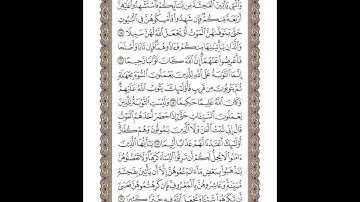 وَٱلَّـٰتِى يَأْتِينَ ٱلْفَـٰحِشَةَ مِن نِّسَآئِكُمْ فَٱسْتَشْهِدُوا۟ عَلَيْهِنَّ
أَرْبَعَةً مِّنكُمْ فَإِن شَهِدُوا۟ فَأَمْسِكُوهُنَّ فِى ٱلْبُيُوتِ
حَتَّىٰ يَتَوَفَّىٰهُنَّ ٱلْمَوْتُ أَوْ يَجْعَلَ ٱللَّهُ لَهُنَّ سَبِيلًا ١٥
وَٱلَّذَانِ يَأْتِيَـٰنِهَا مِنكُمْ فَـَٔاذُوهُمَا فَإِن تَابَا وَأَصْلَحَا
فَأَعْرِضُوا۟ عَنْهُمَآ إِنَّ ٱللَّهَ كَانَ تَوَّابًا رَّحِيمًا ١٦
إِنَّمَا ٱلتَّوْبَةُ عَلَى ٱللَّهِ لِلَّذِينَ يَعْمَلُونَ ٱلسُّوٓءَ بِجَهَـٰلَةٍ
ثُمَّ يَتُوبُونَ مِن قَرِيبٍ فَأُو۟لَـٰٓئِكَ يَتُوبُ ٱللَّهُ عَلَيْهِمْ
وَكَانَ ٱللَّهُ عَلِيمًا حَكِيمًا ١٧ وَلَيْسَتِ ٱلتَّوْبَةُ لِلَّذِينَ
يَعْمَلُونَ ٱلسَّيِّـَٔاتِ حَتَّىٰٓ إِذَا حَضَرَ أَحَدَهُمُ ٱلْمَوْتُ
قَالَ إِنِّى تُبْتُ ٱلْـَٔـٰنَ وَلَا ٱلَّذِينَ يَمُوتُونَ وَهُمْ كُفَّارٌ
أُو۟لَـٰٓئِكَ أَعْتَدْنَا لَهُمْ عَذَابًا أَلِيمًا ١٨ يَـٰٓأَيُّهَا ٱلَّذِينَ
ءَامَنُوا۟ لَا يَحِلُّ لَكُمْ أَن تَرِثُوا۟ ٱلنِّسَآءَ كَرْهًا وَلَا تَعْضُلُوهُنَّ
لِتَذْهَبُوا۟ بِبَعْضِ مَآ ءَاتَيْتُمُوهُنَّ إِلَّآ أَن يَأْتِينَ بِفَـٰحِشَةٍ
مُّبَيِّنَةٍ وَعَاشِرُوهُنَّ بِٱلْمَعْرُوفِ فَإِن كَرِهْتُمُوهُنَّ فَعَسَىٰٓ
أَن تَكْرَهُوا۟ شَيْـًٔا وَيَجْعَلَ ٱللَّهُ فِيهِ خَيْرًا كَثِيرًا ١٩